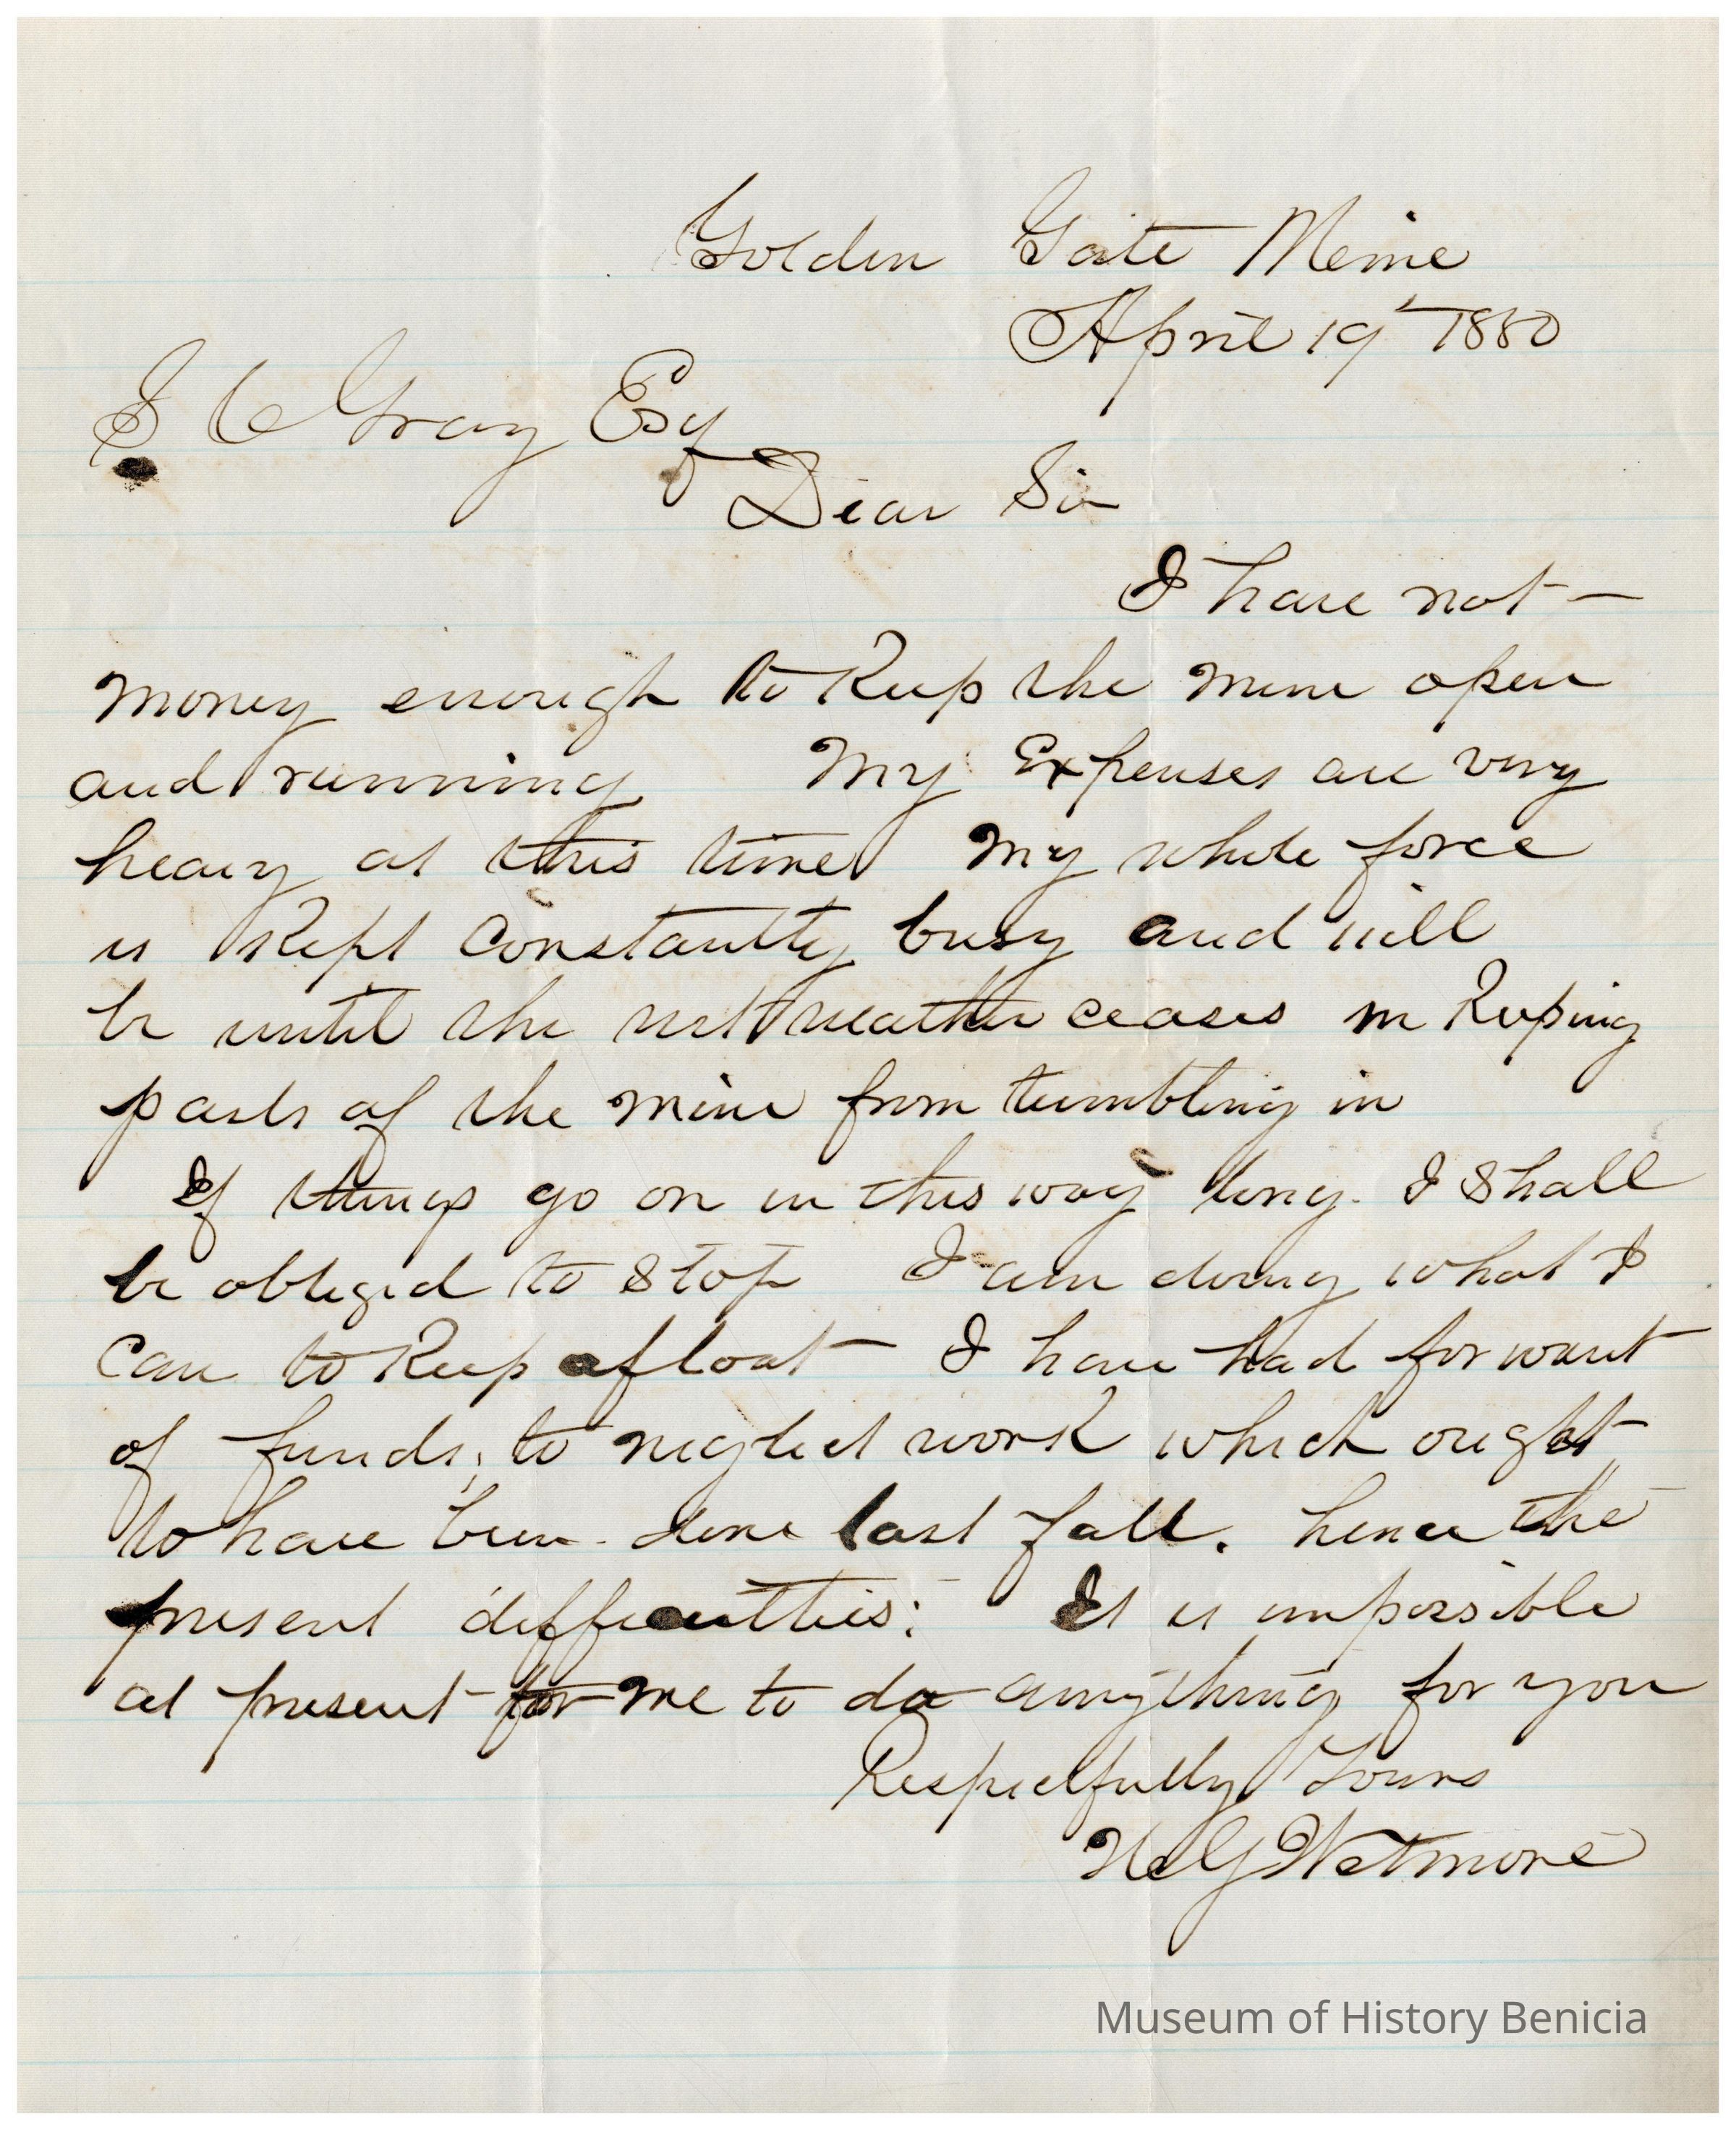 Golden Gate Mine
April 19th 1880
S C Gray Esq
Dear Sir
I have not
money enough to Keep the mine open
and running My Expenses are very
heavy at this time My whole force
is Kept Constantly busy and will
be until the wet weather ceases in Keeping
parts of the mine from tumbling in
If things go on in this way long. I Shall
be obliged to Stop I am doing what I
Can to Keep afloat I have had for want
of funds, to neglect work which ought
to have been done last fall. hence the
present difficulties: It is impossible
at present for me to do anything for you
Respectfully Yours
Wetmore
Museum of History Benicia